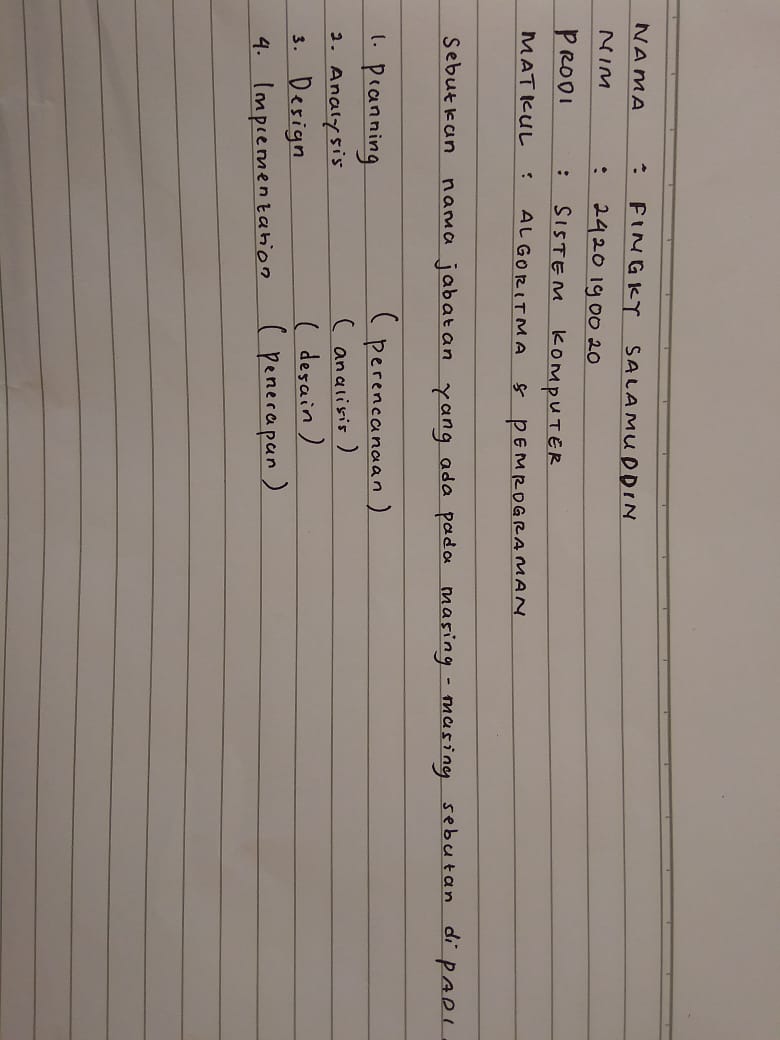 NAMA : FINGKY SALAMUDDIN
NIM : 2420190020
PRODI : SISTEM KOMPUTER
MATKUL : ALGORITMA & PEMROGRAMAN
Sebutkan nama jabatan yang ada pada masing-masing sebutan di PADI.
1. Planning (perencanaan)
2. Analysis (analisis)
3. Design (desain)
4. Implementation (penerapan)